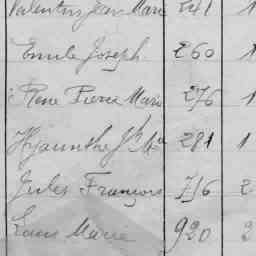 Valentin Jean Marie 241 1
Emile Joseph 260 1
René Pierre Marie 276 1
Hyacinthe Jh Ma 281 1
Jules François 716 2
Louis Marie 920 2